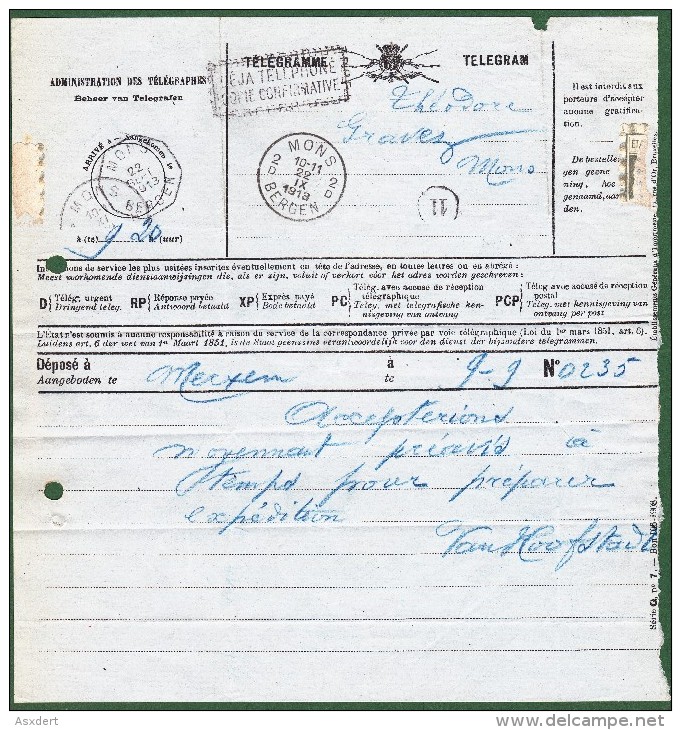 TÉLÉGRAMME
TELEGRAM
ADMINISTRATION DES TÉLÉGRAPHES
Beheer van Telegrafen
DÉJA TÉLÉPHONÉ
COPIE CONFIRMATIVE
Théodore
Gravez
Mons
Il est interdit aux
porteurs d'accepter
aucune gratifica-
tion.
De bestelle
gen geene
ning, hoe
genaamd, aan
den.
ARRIVÉ à — Aangekomen te
MONS
22
1913
BERGEN
MONS
10-11
22
IX
1913
BERGEN
2 D
2 D
11
à (te) 9 20 (uur)
Indications de service les plus usitées inscrites éventuellement en tête de l'adresse, en toutes lettres ou en abrégé :
Meest voorkomende dienstaanwijzingen die, als er zijn, voluit of verkort vóór het adres worden geschreven :
D Télég. urgent Dringend teleg.
RP Réponse payée Antwoord betaald
XP Exprès payé Bode betaald
PC Télég. avec accusé de réception télégraphique Teleg. met telegrafische kennisgeving van ontvang
PCP Télég. avec accusé de réception postal Teleg. met kennisgeving van ontvang per post
L'État n'est soumis à aucune responsabilité à raison du service de la correspondance privée par voie télégraphique (Loi du 1er mars 1851, art. 6).
Luidens art. 6 der wet van 1n Maart 1851, is de Staat geenszins verantwoordelijk voor den dienst der bijzondere telegrammen.
Déposé à Merxem à 9-9 N° 0235
Aangeboden te te
Accepterions
moyennant préavis à
temps pour préparer
expédition
Van Hoofstadt
Série O, n° 7. —
Asxdert
delcampe.net